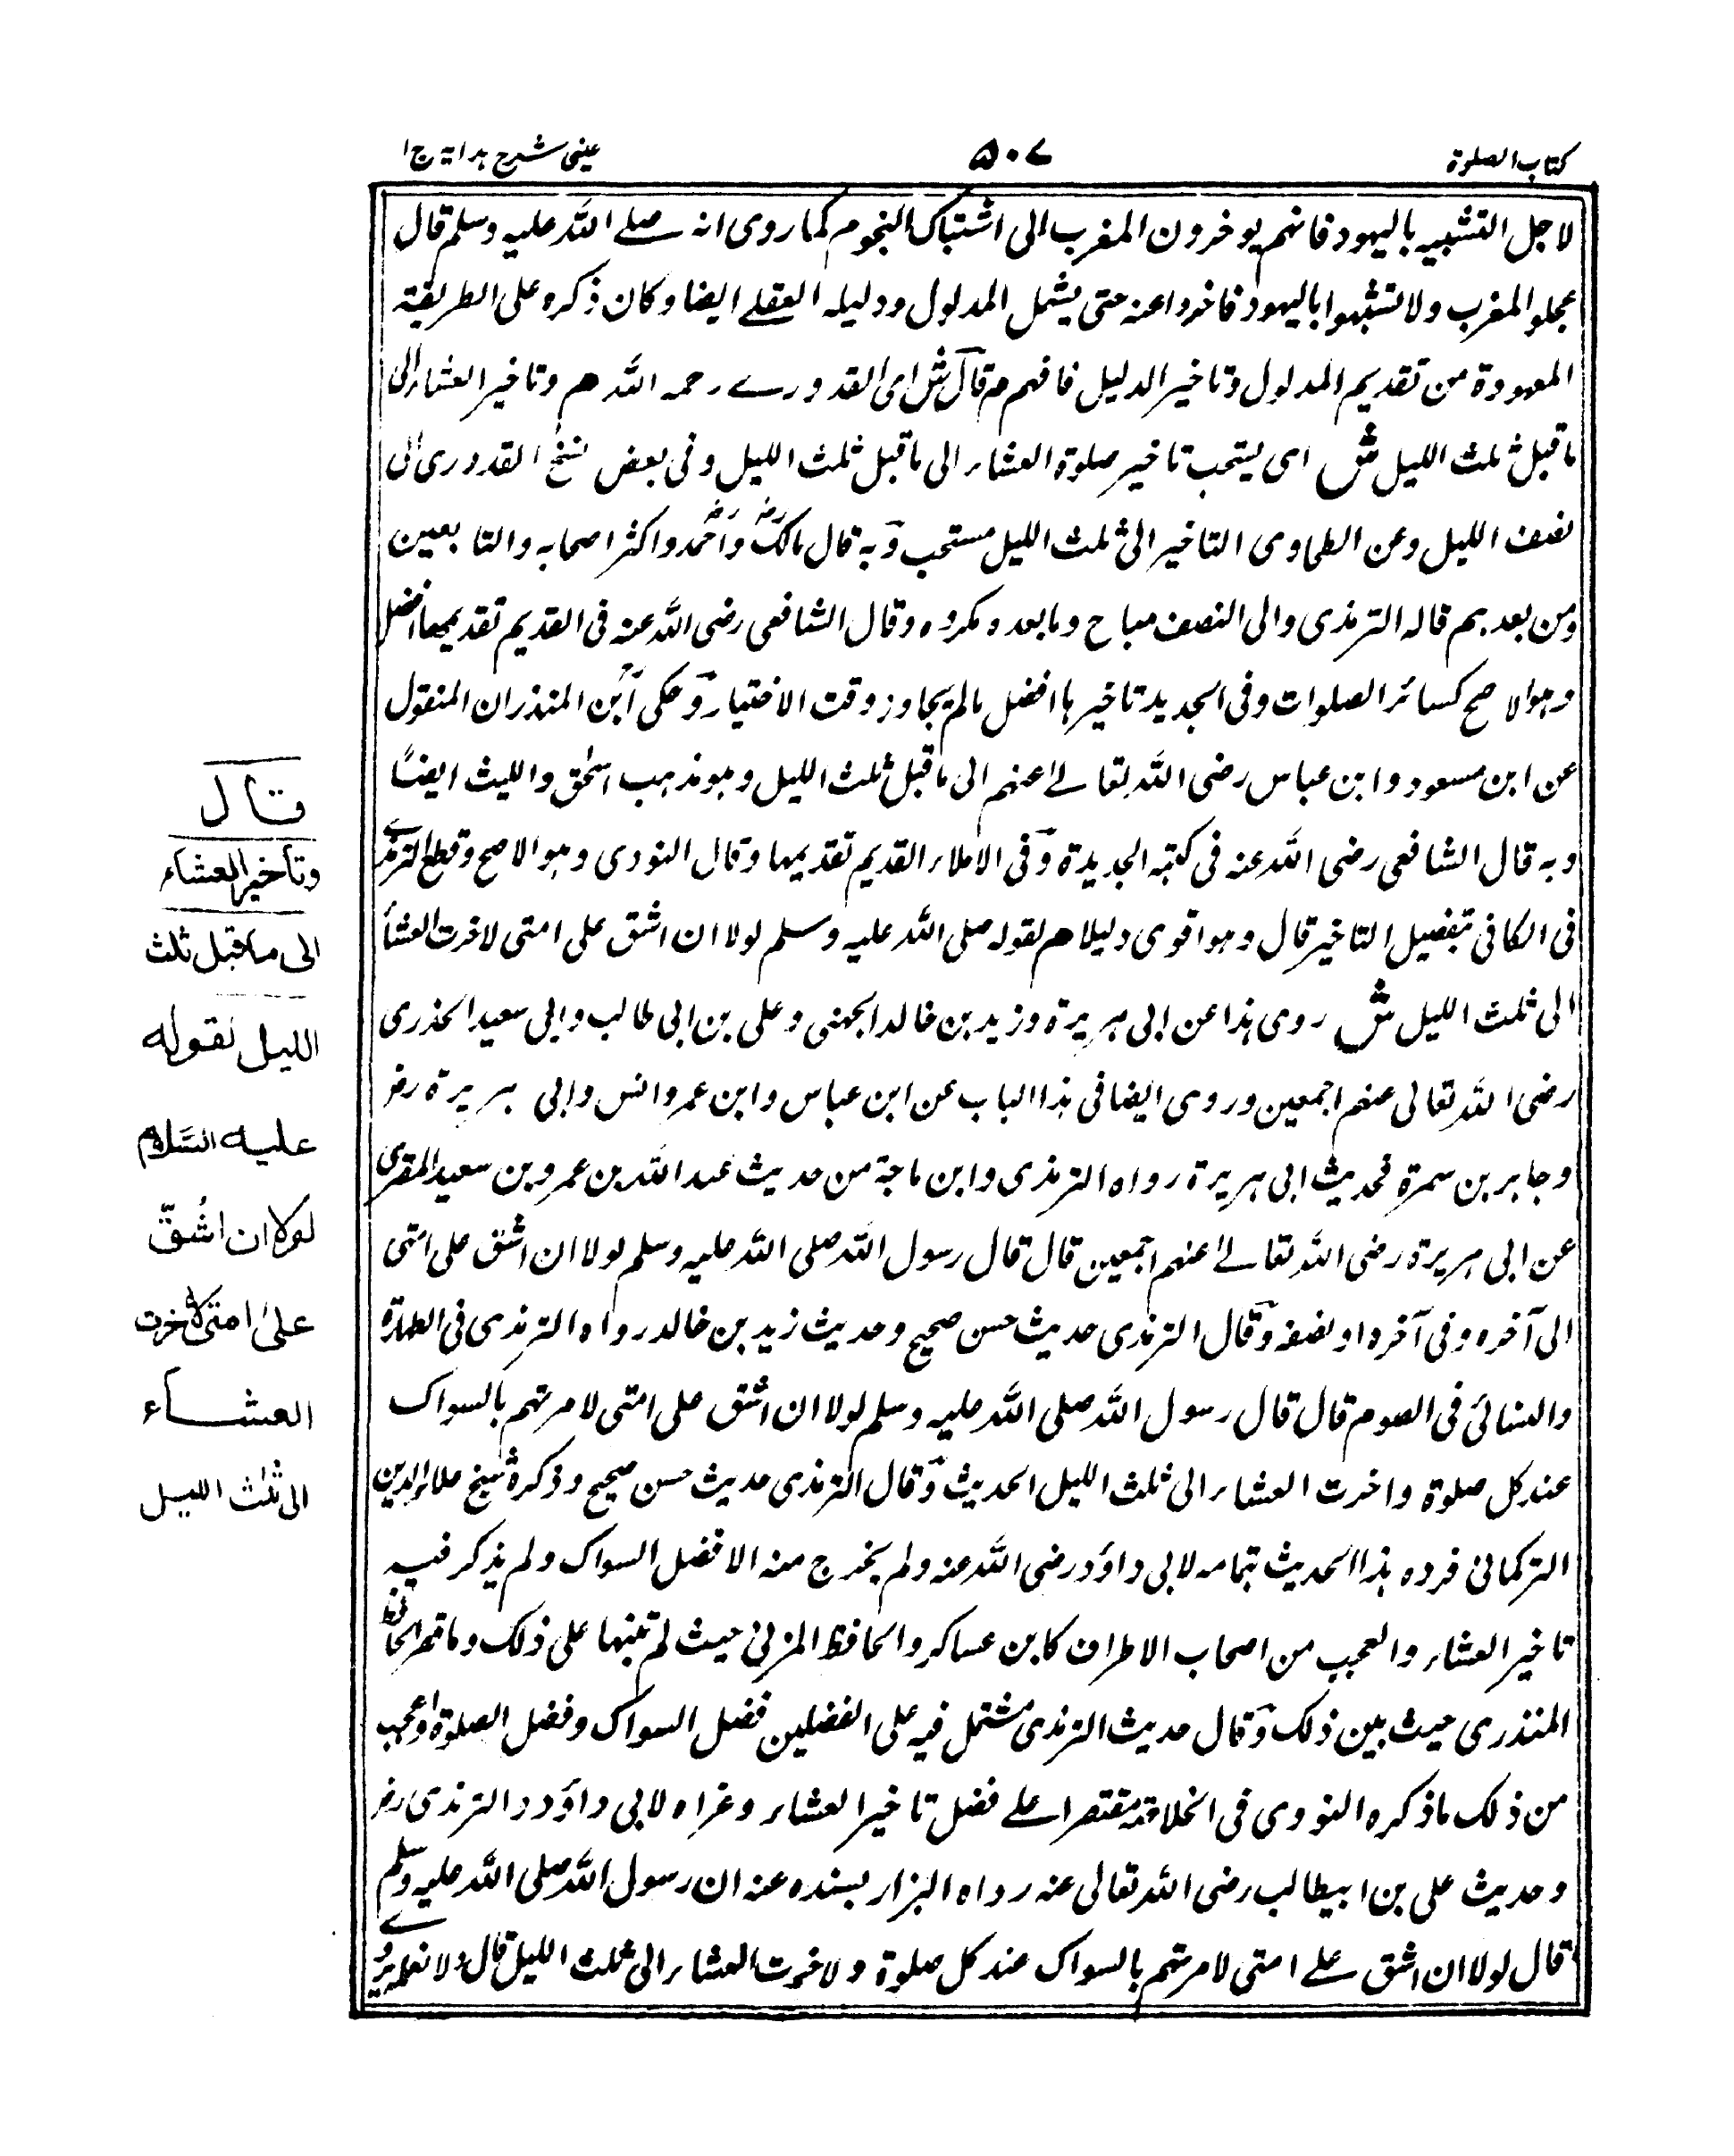 كتاب الصلوة
٥٠٧
عينى شرح هداية ج ١
لاجل التشبيه باليهود فانهم يوخرون المغرب الى اشتباك النجوم كما روى انه صلے الله عليه وسلم قال
عجلو المغرب ولا تشبهوا باليهود فاخروا عنه حتى يشمل المدلول ودليله العقلے ايضا وكان ذكره على الطريقة
المعهودة من تقديم المدلول وتاخير الدليل فافهم م قال ش اى القدورے رحمه الله م وتاخير العشاء الى
ما قبل ثلث الليل ش اى يستحب تاخير صلوة العشاء الى ما قبل ثلث الليل وفى بعض نسخ القدورى الى
نصف الليل وعن الطحاوى التاخير الى ثلث الليل مستحب وبه قال مالك رض واحمد رض واكثر اصحابه والتابعين
ومن بعدهم قاله الترمذى والى النصف مباح وما بعده مكروه وقال الشافعى رضى الله عنه فى القديم تقديمها افضل
وهو الاصح كسائر الصلوات وفى الجديد تاخيرها افضل مالم يجاوز وقت الاختيار وحكى ابن المنذر ان المنقول
عن ابن مسعود وابن عباس رضى الله تعالےٰ عنهم الى ما قبل ثلث الليل وهو مذهب اسحٰق والليث ايضًا
وبه قال الشافعى رضى الله عنه فى كتبه الجديدة وفى الاملاء القديم تقديمها وقال النووى وهو الاصح وقطع الترمذے
فى الكافى بتفضيل التاخير قال وهو اقوى دليلا م لقوله صلى الله عليه وسلم لولا ان اشق على امتى لاخرت العشاء
الى ثلث الليل ش روى هذا عن ابى هريرة وزيد بن خالد الجهنى وعلى بن ابى طالب وابى سعيد الخذرى
رضى الله تعالى عنهم اجمعين وروى ايضا فى هذا الباب عن ابن عباس وابن عمر وانس وابى هريرة رض
وجابر بن سمرة فحديث ابى هريرة رواه الترمذى وابن ماجة من حديث عبد الله بن عمرو بن سعيد المقبرى
عن ابى هريرة رضى الله تعالےٰ عنهم اجمعين قال قال رسول الله صلى الله عليه وسلم لولا ان اشق على امتى
الى آخره وفى آخره او نصفه وقال الترمذى حديث حسن صحيح وحديث زيد بن خالد رواه الترمذى فى الطهارة
والنسائى فى الصوم قال قال رسول الله صلى الله عليه وسلم لولا ان اشق على امتى لامرتهم بالسواك
عند كل صلوة واخرت العشاء الى ثلث الليل الحديث وقال الترمذى حديث حسن صحيح وذكره شيخ علاء الدين
التركمانى فرده هذا الحديث بتمامه لابى داؤد رضى الله عنه ولم يخرج منه الا فضل السواك ولم يذكر فيه
تاخير العشاء والعجب من اصحاب الاطراف كابن عساكر والحافظ المزنى حيث لم تنبها على ذلك وما قصر الحافظ
المنذرى حيث بين ذلك وقال حديث الترمذى مشتمل فيه على الفضلين فضل السواك وفضل الصلوة واعجب
من ذلك ما ذكره النووى فى الخلاصة مقتصرا علے فضل تاخير العشاء وعزاه لابى داؤد والترمذى رض
وحديث على بن ابيطالب رضى الله تعالى عنه رواه البزار بسنده عنه ان رسول الله صلى الله عليه وسلم
قال لولا ان اشق علے امتى لامرتهم بالسواك عند كل صلوة ولاخرت العشاء الى ثلث الليل قال ولا نعلم
قال
وتأخير العشاء
الى ما قبل ثلث
الليل لقوله
عليه السَّلام
لولا ان اشُقّ
علىٰ امتى لاخرت
العشاء
الى ثلث الليل